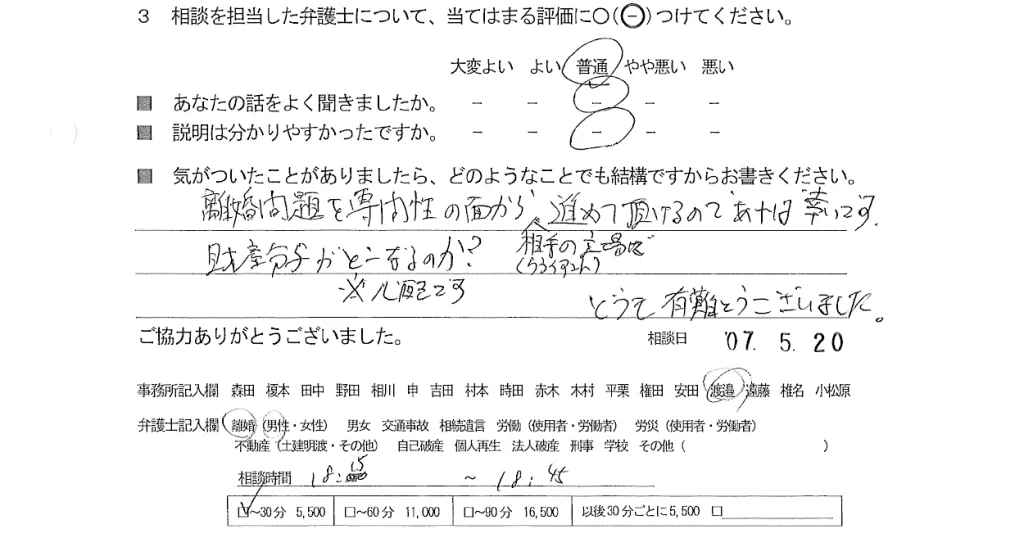 3 相談を担当した弁護士について、当てはまる評価に○(⊖)つけてください。
大変よい よい 普通 やや悪い 悪い
■ あなたの話をよく聞きましたか。 － － － － －
■ 説明は分かりやすかったですか。 － － － － －
■ 気がついたことがありましたら、どのようなことでも結構ですからお書きください。
離婚問題を専門性の面から、進めて頂けるのであれば幸いです。
相手の立場で
財産分与がどうなるのか?
(クライアント)
※心配です
どうも有難とうございました。
ご協力ありがとうございました。 相談日 '07. 5. 20
事務所記入欄 森田 榎本 田中 野田 相川 申 吉田 村本 時田 赤木 木村 平栗 権田 安田 渡邉 遠藤 椎名 小松原
弁護士記入欄 離婚 (男性・女性) 男女 交通事故 相続遺言 労働 (使用者・労働者) 労災 (使用者・労働者)
不動産 (土建明渡・その他) 自己破産 個人再生 法人破産 刑事 学校 その他 ( )
相談時間 18:15 ～ 18:45
☑～30分 5,500 □～60分 11,000 □～90分 16,500 以後30分ごとに5,500 □